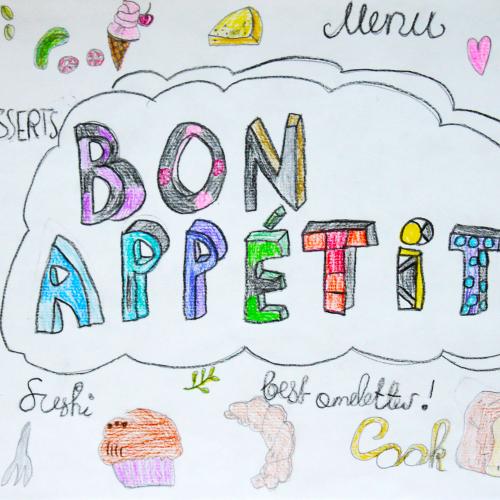 Menu
SSERTS
BON
APPÉTiT
Sushi
Best omelettes!
Cook